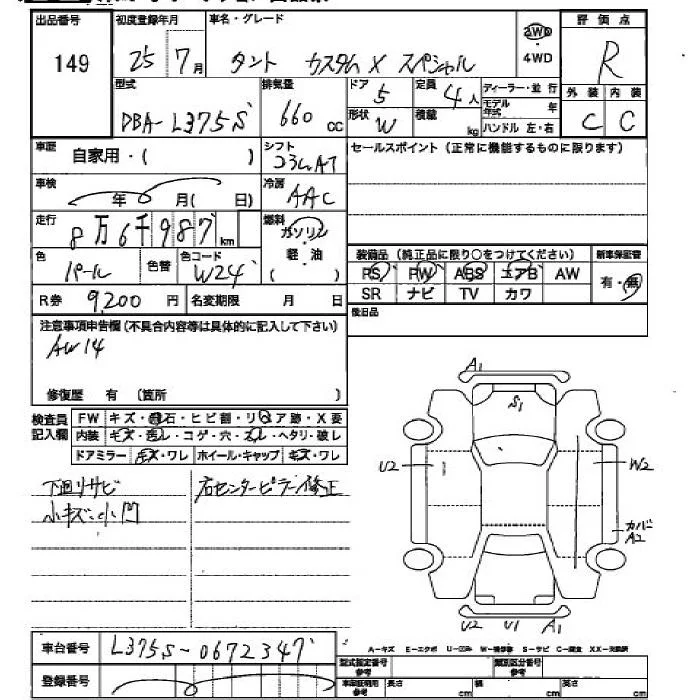 出品番号 初度登録年月 車名・グレード 評価点
149 25年7月 タント カスタムX スペシャル 2WD・4WD R
型式 排気量 ドア 5 定員 4人 ディーラー・並行 外装 内装
DBA-L375S 660cc 形状 W 積載 kg モデル年式 年 C C
ハンドル 左・右
車歴 自家用・( ) シフト コラムAT セールスポイント(正常に機能するものに限ります)
車検 年 月( 日) 冷房 AAC
走行 8万6千987km 燃料 ガソリン
軽・油
( )
色 パール 色替 色コード W24 装備品(純正品に限り○をつけてください) 新車保証書
PS PW ABS エアB AW 有・無
SR ナビ TV カワ
R券 9,200円 名変期限 月 日 後日品
注意事項申告欄(不具合内容等は具体的に記入して下さい)
AW14
修復歴 有 (箇所 )
検査員記入欄 FW キズ・飛石・ヒビ割・リペア跡・X要
内装 キズ・汚レ・コゲ・穴・スレ・ヘタリ・破レ
ドアミラー キズ・ワレ ホイール・キャップ キズ・ワレ
下廻りサビ 右センターピラー修正
小キズ・小凹
A1
S1
U2 W2
カバーA2
U2 U1 A1
車台番号 L375S-0672347
登録番号
A-キズ E-エクボ U-凹み W-補修跡 S-サビ C-腐食 XX-交換済
型式指定番号 参考 類別区分番号 参考
車庫証明用 参考 長さ cm 幅 cm 高さ cm